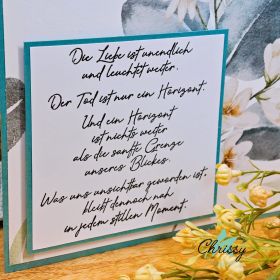 Die Liebe ist unendlich
und leuchtet weiter.
Der Tod ist nur ein Horizont.
Und ein Horizont
ist nichts weiter
als die sanfte Grenze
unseres Blickes.
Was uns unsichtbar geworden ist,
bleibt dennoch nah
in jedem stillen Moment.
Chrissy